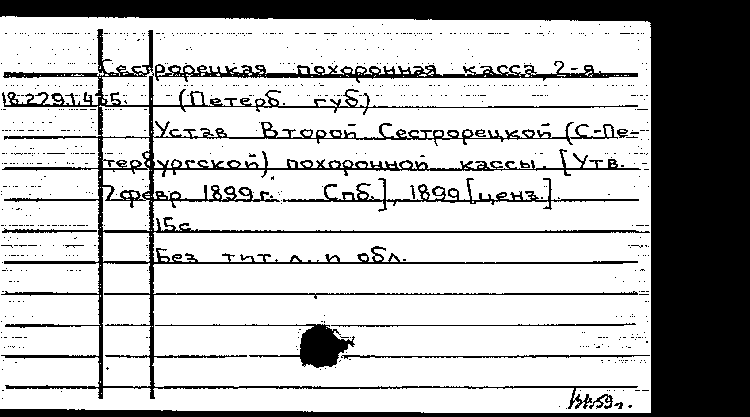 Сестрорецкая похоронная касса, 2-я.
18.229.1.435. (Петерб. губ.)
Устав Второй Сестрорецкой (С-Пе-
тербургской) похоронной кассы. [Утв.
7 февр. 1899 г. Спб.], 1899 [ценз.]
15с.
Без тит. л. и обл.